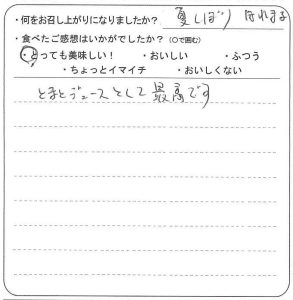 ・何をお召し上がりになりましたか？ 夏しぼり
・食べたご感想はいかがでしたか？（○で囲む）
・とっても美味しい！ ・おいしい ・ふつう
・ちょっとイマイチ ・おいしくない
とまとジュースとして最高です